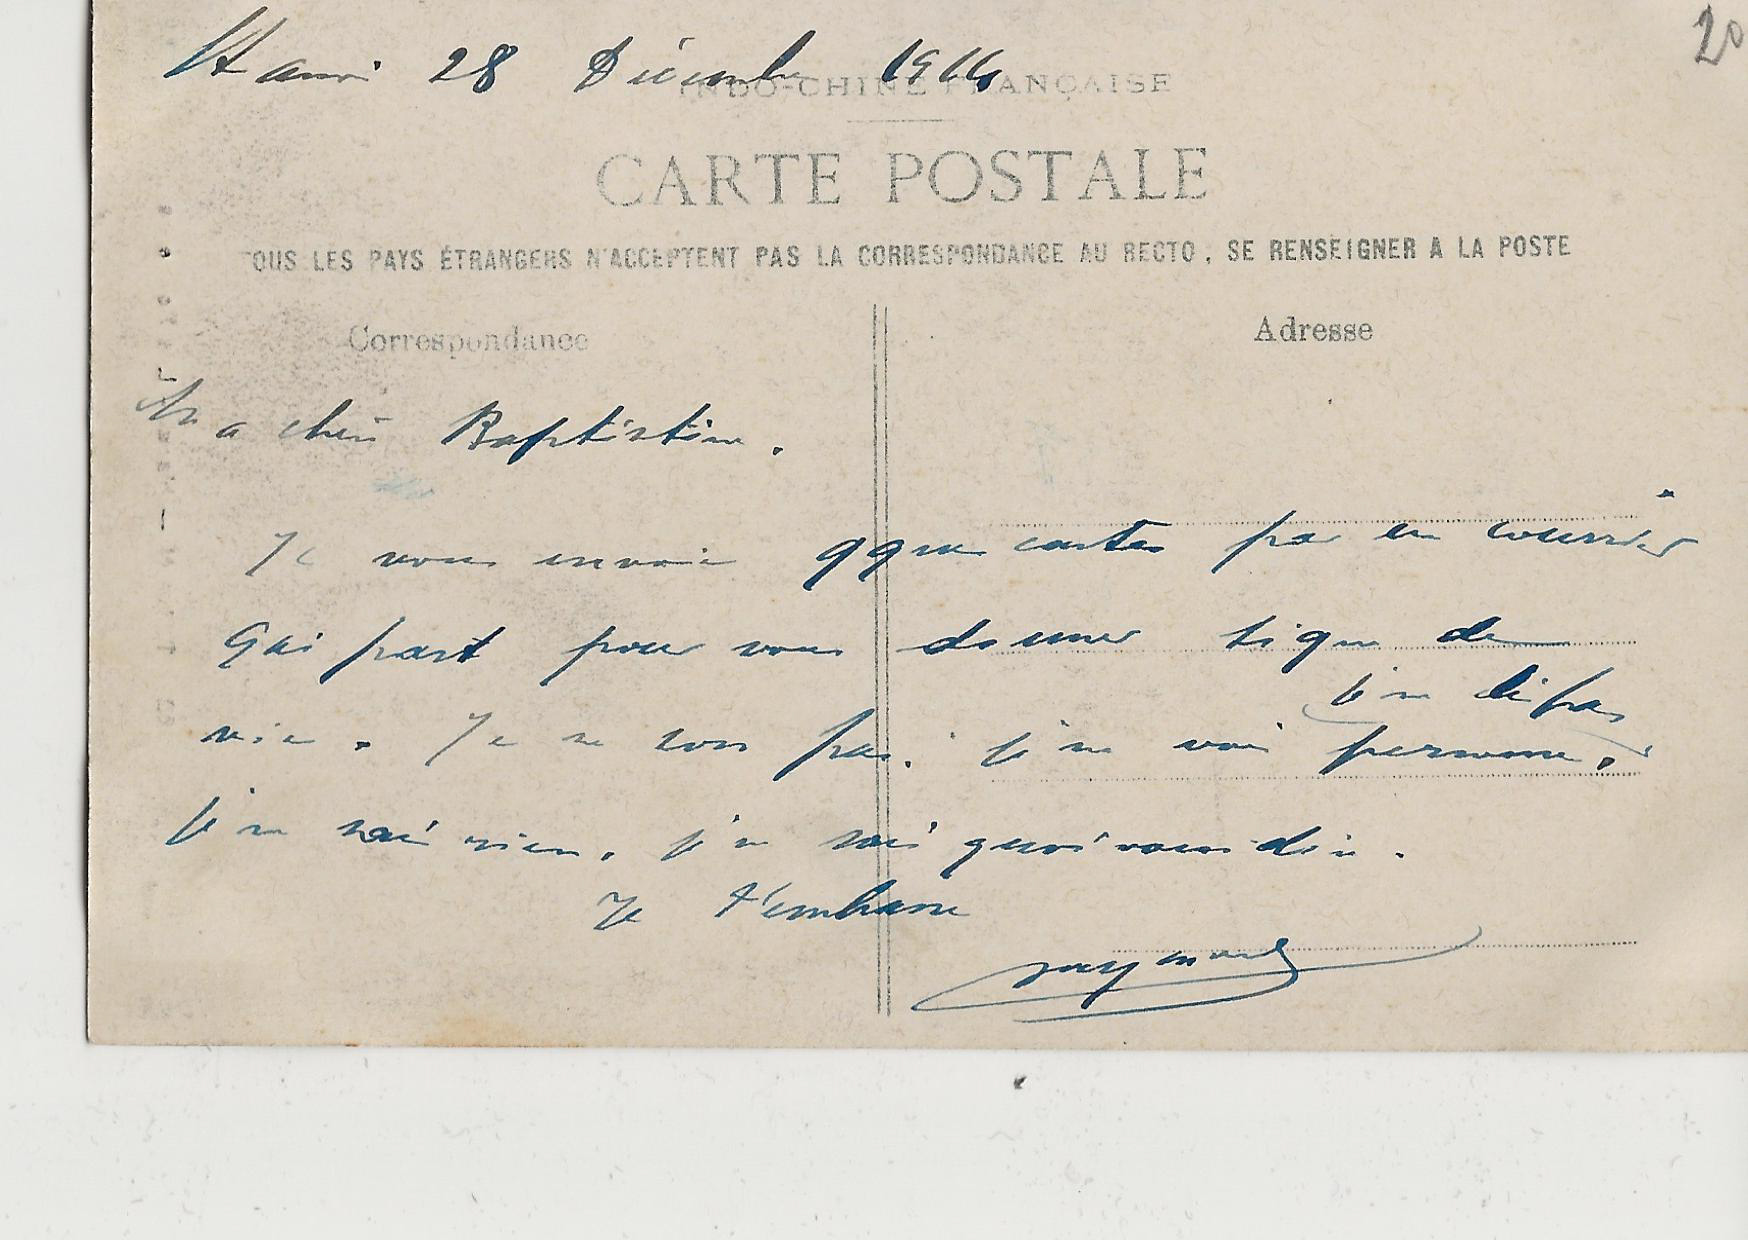 20
Hanoi 28 Décembre 1914
INDO-CHINE FRANÇAISE
CARTE POSTALE
TOUS LES PAYS ÉTRANGERS N'ACCEPTENT PAS LA CORRESPONDANCE AU RECTO ; SE RENSEIGNER A LA POSTE
Correspondance
Adresse
Ma chère Baptistine.
Je vous envoie qque cartes par un courrier
qui part pour vous donner signe de
vie. Je ne sors pas. je ne vois personne.
je ne dis pas
je ne sais rien. je ne sais quoi vous dire.
Je t'embrasse
Raymond